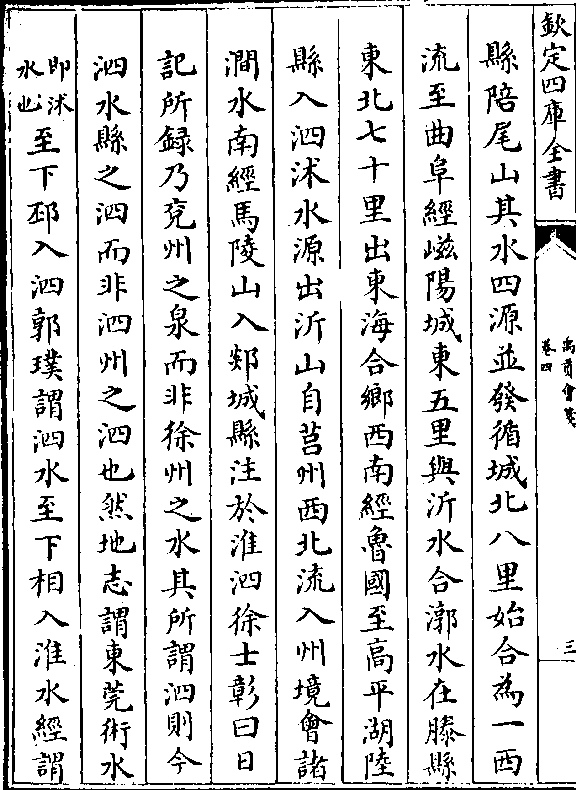 欽定四庫全書
禹貢會箋
卷四
三
縣陪尾山其水四源並發循城北八里始合為一西
流至曲阜經嵫陽城東五里與沂水合漷水在滕縣
東北七十里出東海合鄉西南經魯國至高平湖陸
縣入泗沭水源出沂山自莒州西北流入州境會諸
澗水南經馬陵山入郯城縣注於淮泗徐士彰曰日
記所録乃兖州之泉而非徐州之水其所謂泗則今
泗水縣之泗而非泗州之泗也然地志謂東莞術水
即沭水也至下邳入泗郭璞謂泗水至下相入淮水經謂